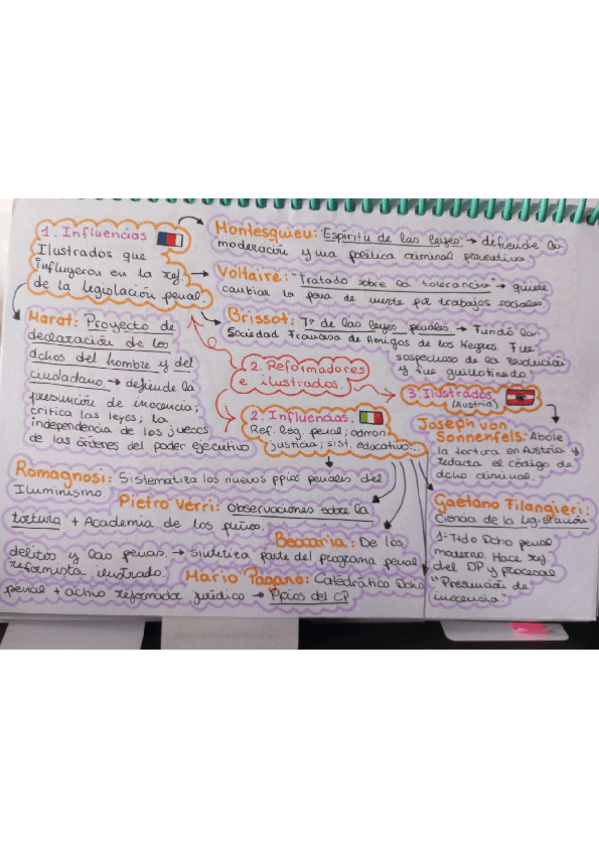 1. Influencias
Ilustrados que
influyeron en la ref.
de la legislación penal.
Montesquieu: "Espíritu de las leyes" → defiende la
moderación y una política criminal preventiva.
Voltaire: "Tratado sobre la tolerancia" → quiere
cambiar la pena de muerte por trabajos sociales
Brissot: Tª de las leyes penales → Fundó la
Sociedad Francesa de Amigos de los Negros. Fue
sospechoso de la revolución
y fue guillotinado.
Marat: Proyecto de
declaración de los
dchos del hombre y del
ciudadano → defiende la
presunción de inocencia;
critica las leyes; la
independencia de los jueces
de las órdenes del poder ejecutivo
2. Reformadores
e ilustrados.
2. Influencias.
Ref. leg. penal; admon
justicia; sist. educativo...
3. Ilustrados
(Austria)
Joseph von
Sonnenfels: Abole
la tortura en Austria y
redacta el código de
dcho criminal.
Gaetano Filangieri:
Ciencia de la legislación
1º Tldo Dcho penal
moderno. Hace ref
del DP y procesal
"Presunción de
inocencia"
Romagnosi: Sistematiza los nuevos ppios penales del
Iluminismo
Pietro Verri: observaciones sobre la
tortura + Academia de los puños.
Beccaria: De los
delitos y las penas. → Sintetiza parte del programa penal
reformista ilustrado.
Mario Pagano: Catedrático Dcho
penal + activo reformador jurídico → Ppios del CP